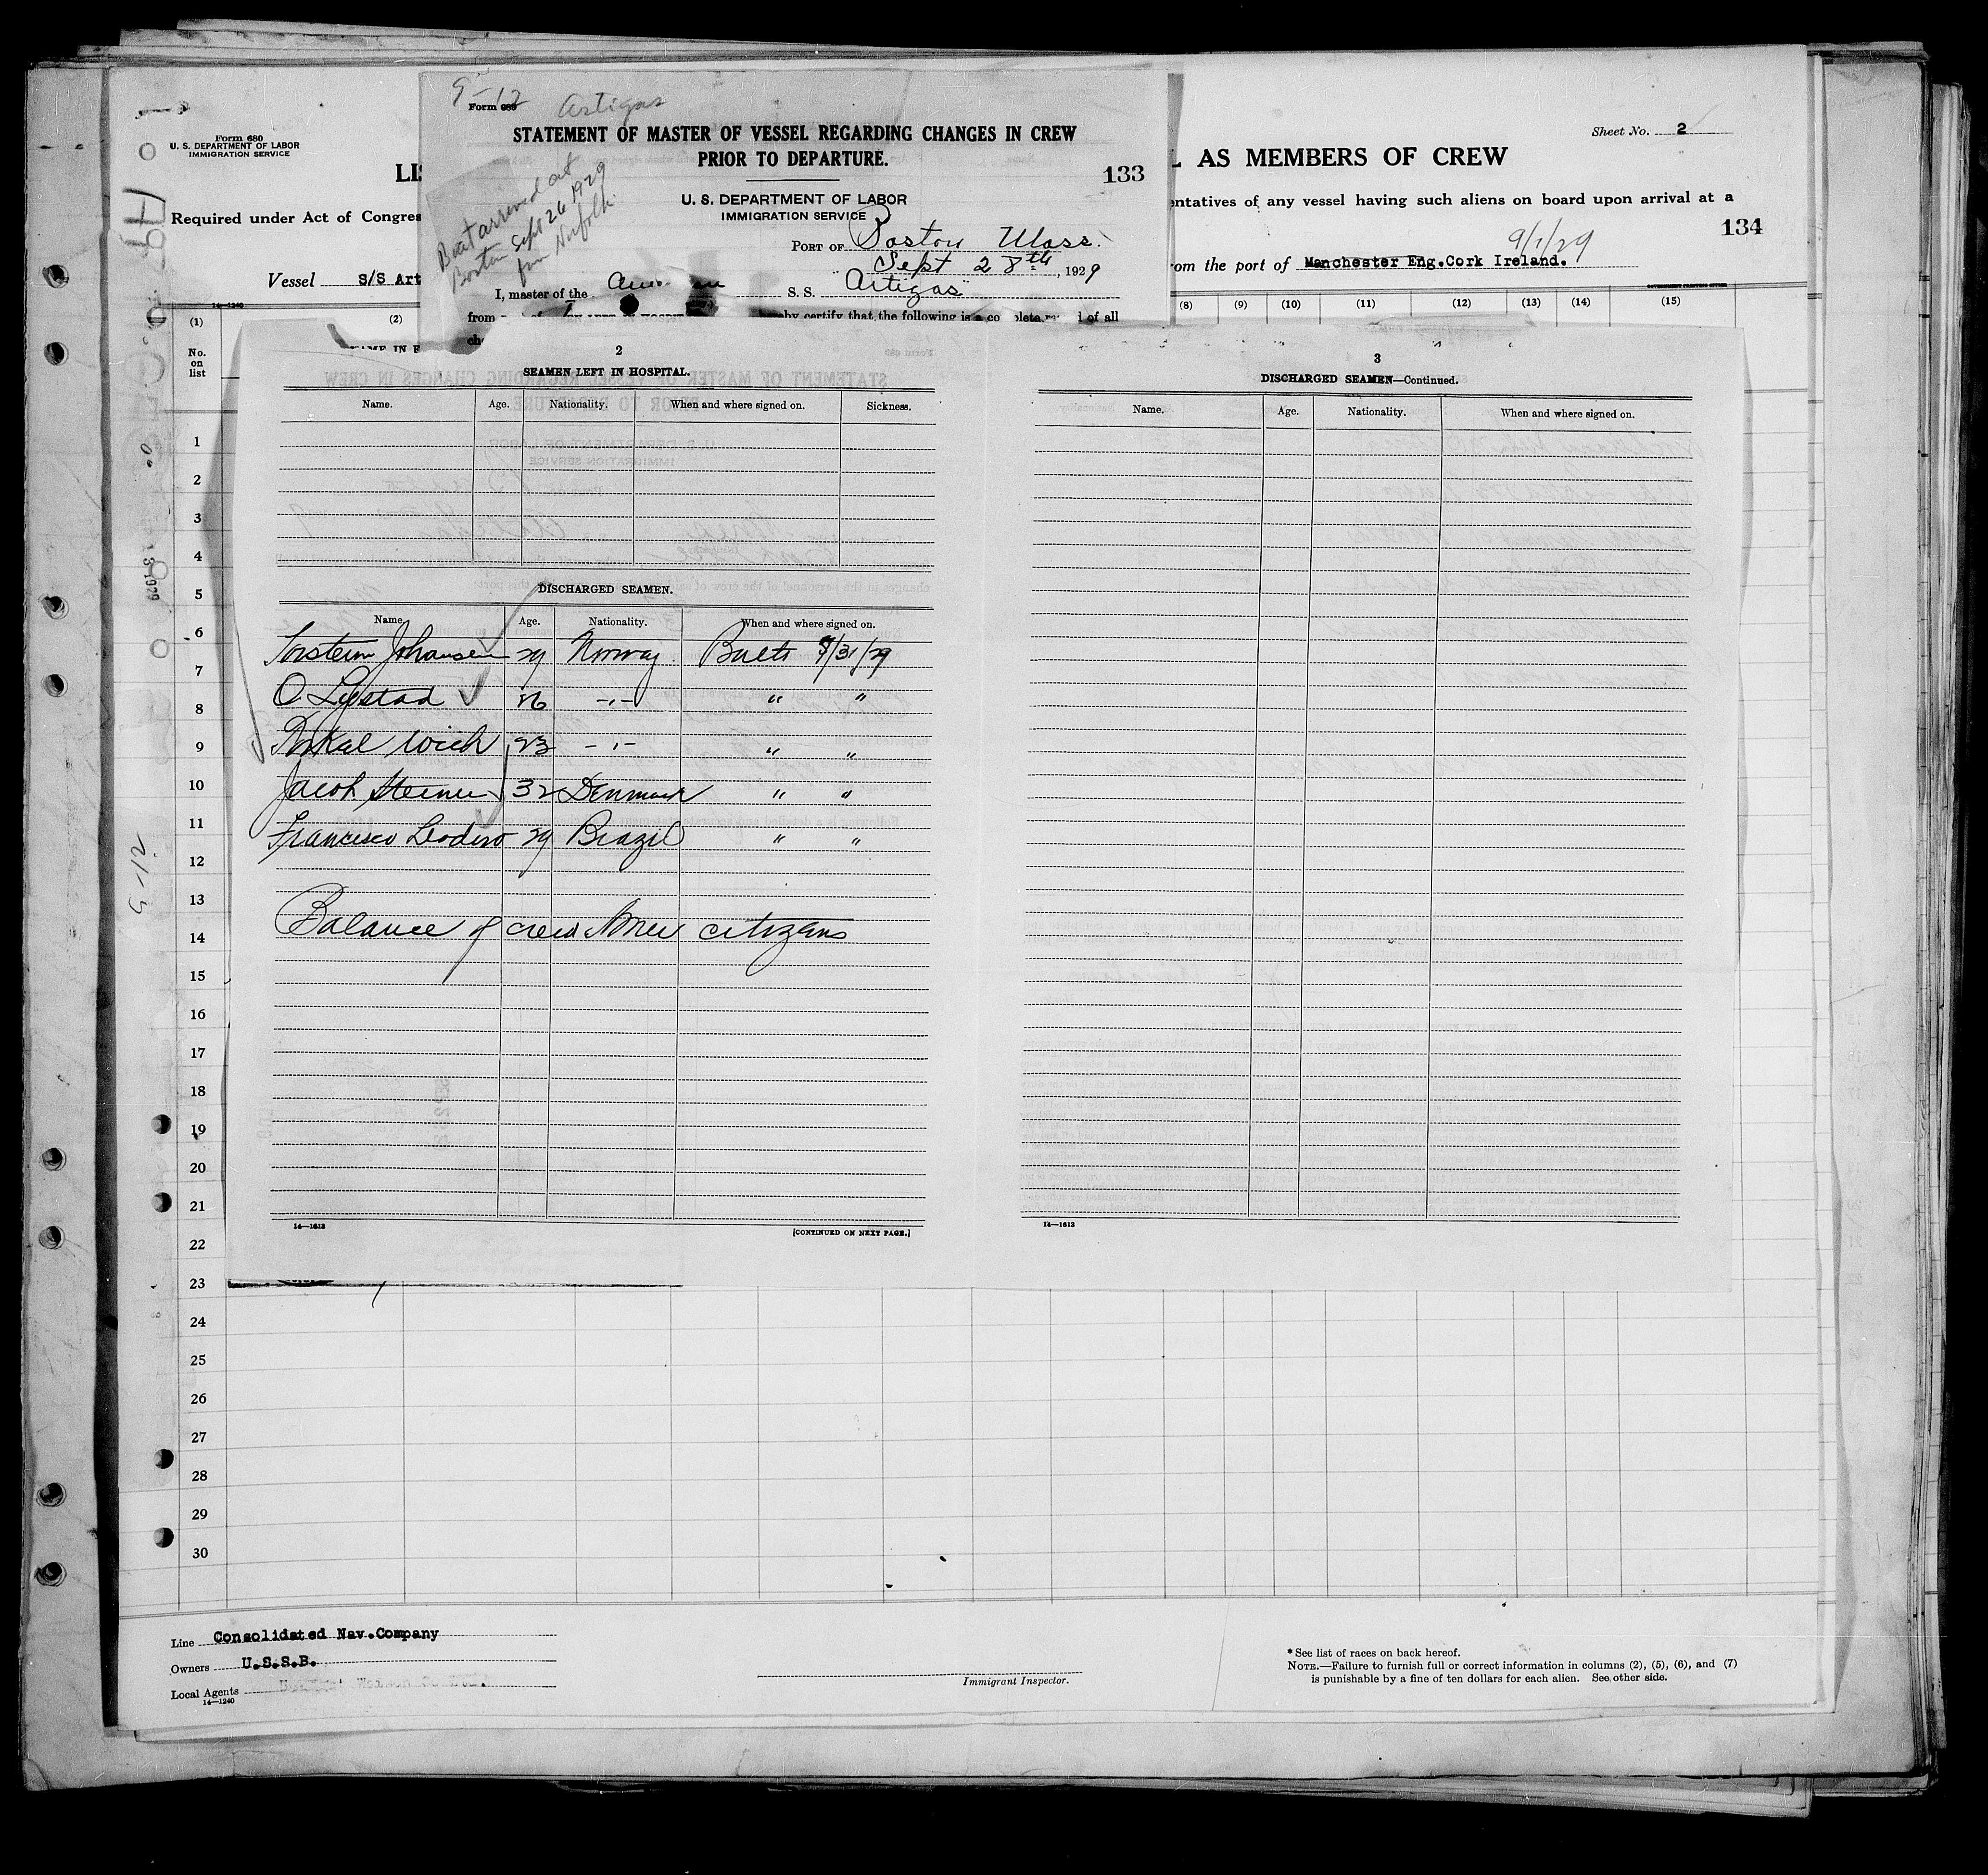 9-12
Form 689
Artigas
STATEMENT OF MASTER OF VESSEL REGARDING CHANGES IN CREW
PRIOR TO DEPARTURE.
133
U. S. DEPARTMENT OF LABOR
IMMIGRATION SERVICE
Boat arrived at
Boston Sept 26 1929
from Norfolk.
PORT OF Boston Mass.
Sept 28th, 1929
I, master of the
S. S. Artigas
from
by certify that the following is a
of all
Form 680
U. S. DEPARTMENT OF LABOR
IMMIGRATION SERVICE
Sheet No. 2
AS MEMBERS OF CREW
Required under Act of Congres
entatives of any vessel having such aliens on board upon arrival at a
134
9/1/29
Vessel S/S Art
om the port of Manchester Eng.Cork Ireland.
14-1240
(1) (2) (8) (9) (10) (11) (12) (13) (14) (15)
No.
on
list
2
SEAMEN LEFT IN HOSPITAL.
Name. Age. Nationality. When and where signed on. Sickness.
DISCHARGED SEAMEN.
Name. Age. Nationality. When and where signed on.
Johansen 29 Norway Balto 8/31/29
O Lystad 26 -,,- " "
23 -,- " "
Jacob 32 Denmark " "
Francisco 29 Brazil " "
Balance of crew Amer citizens
14—1613
[CONTINUED ON NEXT PAGE.]
3
DISCHARGED SEAMEN—Continued.
Name. Age. Nationality. When and where signed on.
14—1613
1
2
3
4
5
6
7
8
9
10
11
12
13
14
15
16
17
18
19
20
21
22
23
24
25
26
27
28
29
30
9-12
Line Consolidated Nav.Company
Owners U.S.S.B.
Local Agents
14—1240
Immigrant Inspector.
* See list of races on back hereof.
NOTE.—Failure to furnish full or correct information in columns (2), (5), (6), and (7)
is punishable by a fine of ten dollars for each alien. See other side.